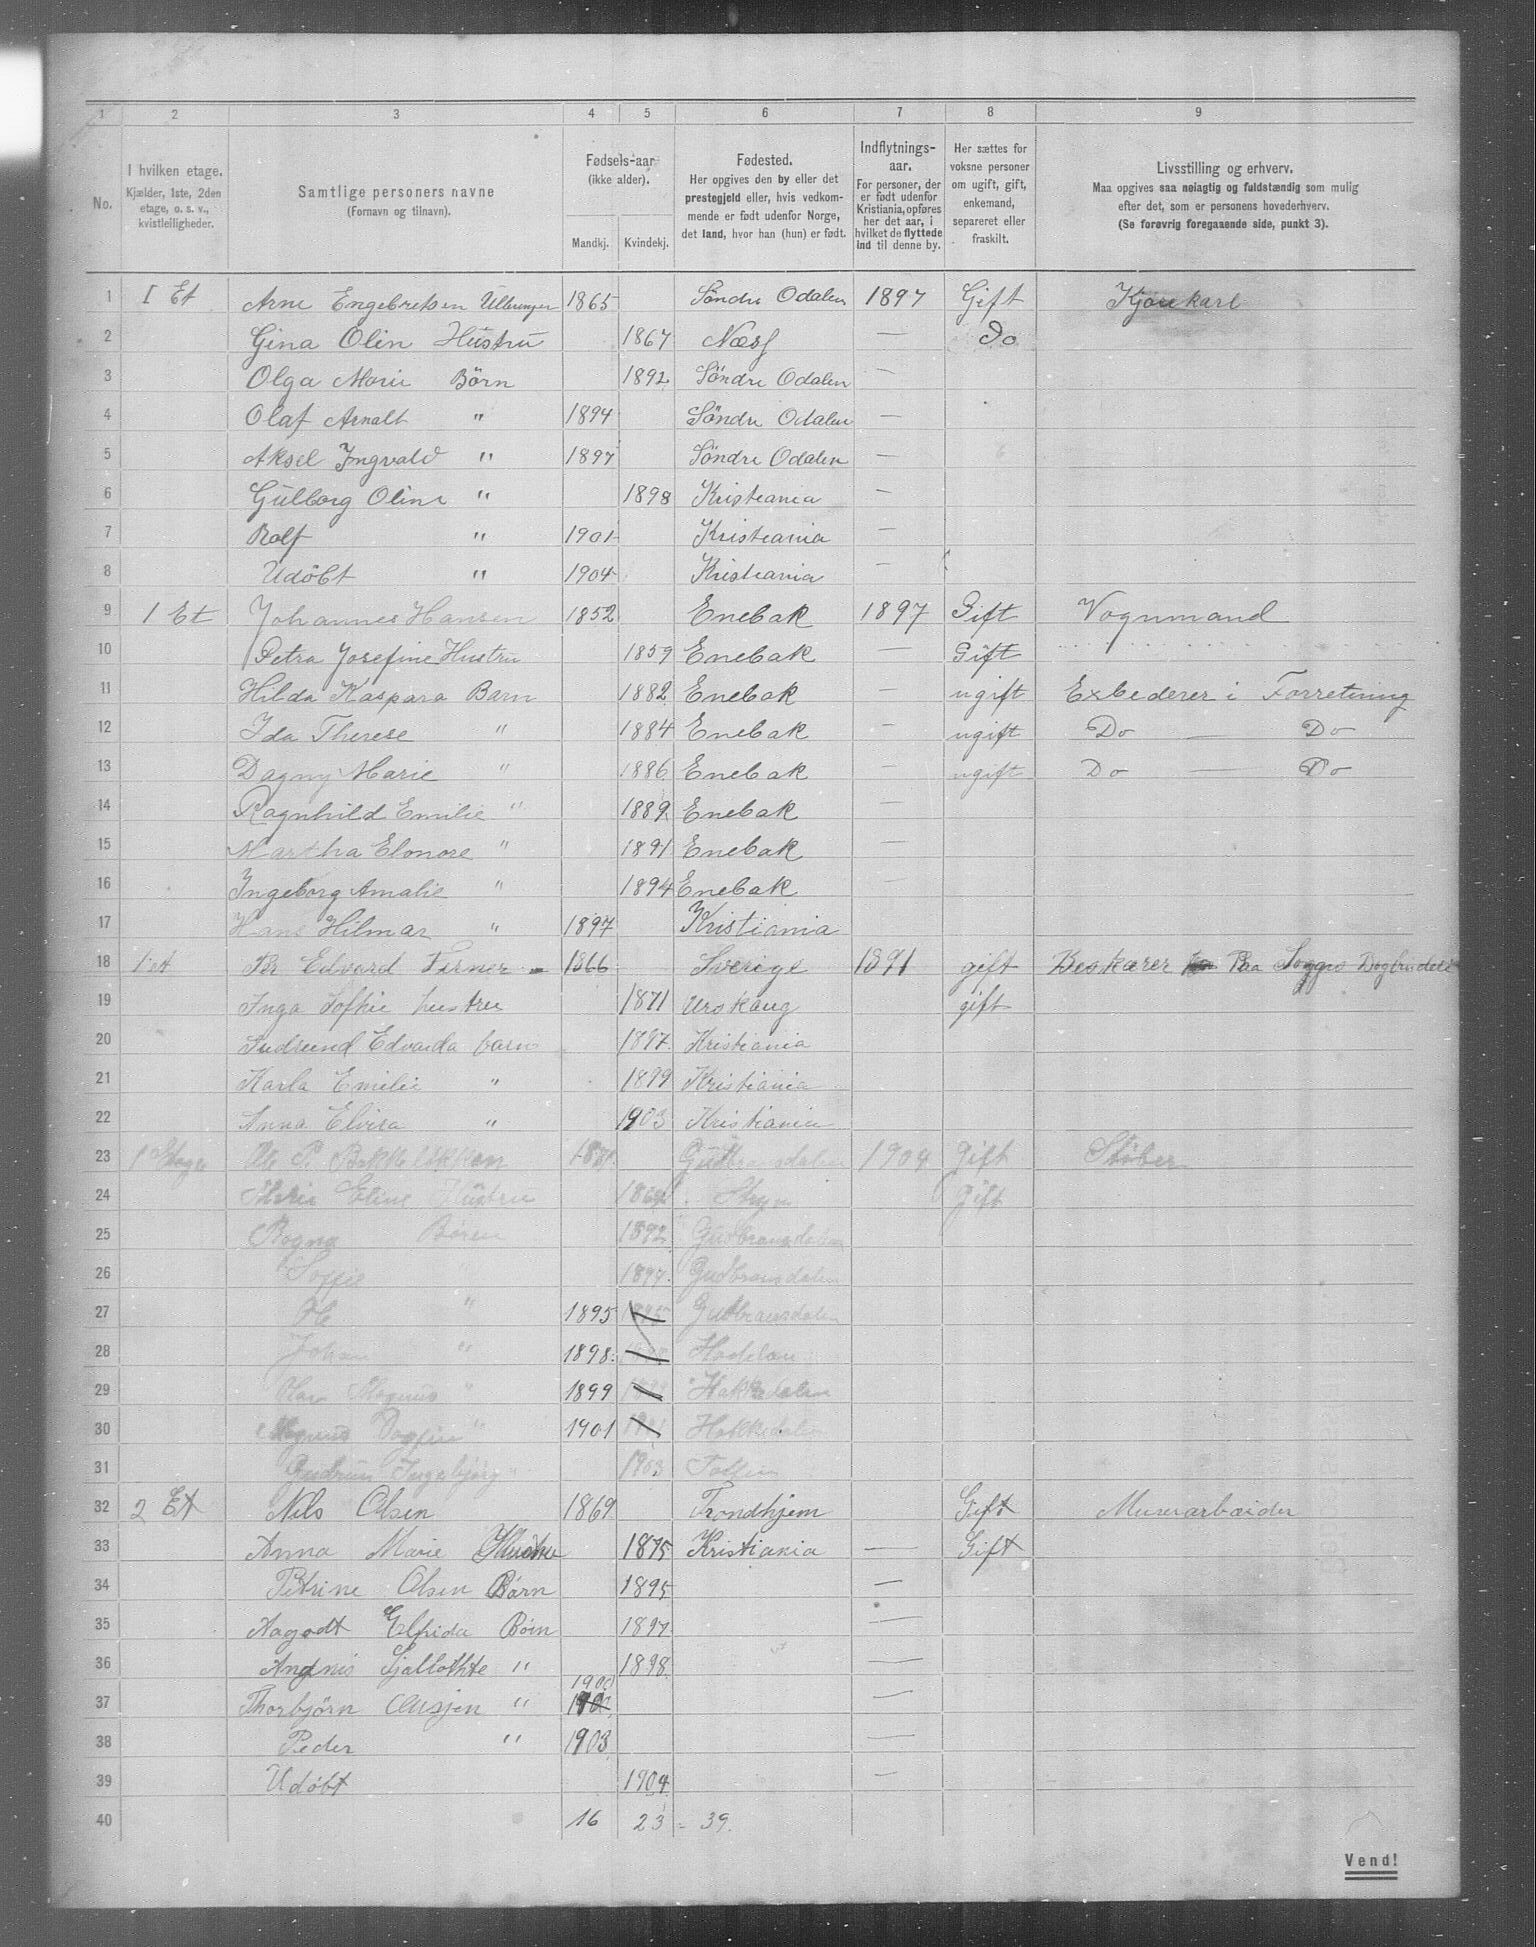 1 2 3 4 5 6 7 8 9
No.
I hvilken etage.
Kjælder, 1ste, 2den
etage, o. s. v.,
kvistleiligheder.
Samtlige personers navne
(Fornavn og tilnavn).
Fødsels-aar
(ikke alder).
Mandkj. Kvindekj.
Fødested.
Her opgives den by eller det
prestegjeld eller, hvis vedkom-
mende er født udenfor Norge,
det land, hvor han (hun) er født.
Indflytnings-
aar.
For personer, der
er født udenfor
Kristiania, opføres
her det aar, i
hvilket de flyttede
ind til denne by.
Her sættes for
voksne personer
om ugift, gift,
enkemand,
separeret eller
fraskilt.
Livsstilling og erhverv.
Maa opgives saa nøiagtig og fuldstændig som mulig
efter det, som er personens hovederhverv.
(Se forøvrig foregaaende side, punkt 3).
1 I Et Arne Engebretsen 1865 Søndre Odalen 1897 Gift Kjørekarl
2 Gina Olin Hustru 1867 Næs — Do
3 Olga Marie Børn 1892 Søndre Odalen —
4 Olaf Arnalt " 1894 Søndre Odalen —
5 Aksel Ingvald " 1897 Søndre Odalen —
6 Gulborg Oline " 1898 Kristiania —
7 Rolf " 1901 Kristiania —
8 Udøbt " 1904 Kristiania —
9 1 Et Johannes Hansen 1852 Enebak 1897 Gift Vognmand
10 Petra Josefine Hustru 1859 Enebak — Gift
11 Hilda Kaspara Barn 1882 Enebak — ugift Exbederer i Forretning
12 Ida Therese " 1884 Enebak — ugift Do — Do
13 Dagny Marie " 1886 Enebak — ugift Do — Do
14 Ragnhild Emilie " 1889 Enebak —
15 Martha Elonore " 1891 Enebak —
16 Ingeborg Amalie " 1894 Enebak —
17 Hans Hilmar " 1897 Kristiania
18 1 et Br Edvard Firner 1866 Sverige 1891 gift Beskærer Paa
19 Inga Sofhie hustru 1871 Urskaug gift
20 Edvarda barn 1897 Kristiania
21 Karla Emilie " 1899 Kristiania
22 Anna Elvira " 1903 Kristiania
23 1 Etage Ole P. 1871 Gudbransdalen 1904 Gift
24 Marie Eline Hustru Gift
25 Børn 1892 Gudbransdalen
26 Soffie 1894 Gudbransdalen
27 Ole " 1895 Gudbransdalen
28 Johan " 1898
29 Olav Magnus " 1899 Hakkedalen
30 Magnus Dagfin " 1901 Hakkedalen
31 Gudrun Ingebjørg " 1903
32 2 Et Nils Olsen 1869 Trondhjem Gift Murerarbeider
33 Anna Marie Hustru 1875 Kristiania — Gift
34 Petrine Olsen Børn 1895 —
35 Aagodt Elfrida Børn 1897 —
36 Sjallothte " 1898 —
37 Thorbjørn " 1900 —
38 Peder " 1903 —
39 Udøbt 1904 —
40 16 23 = 39.
Vend!